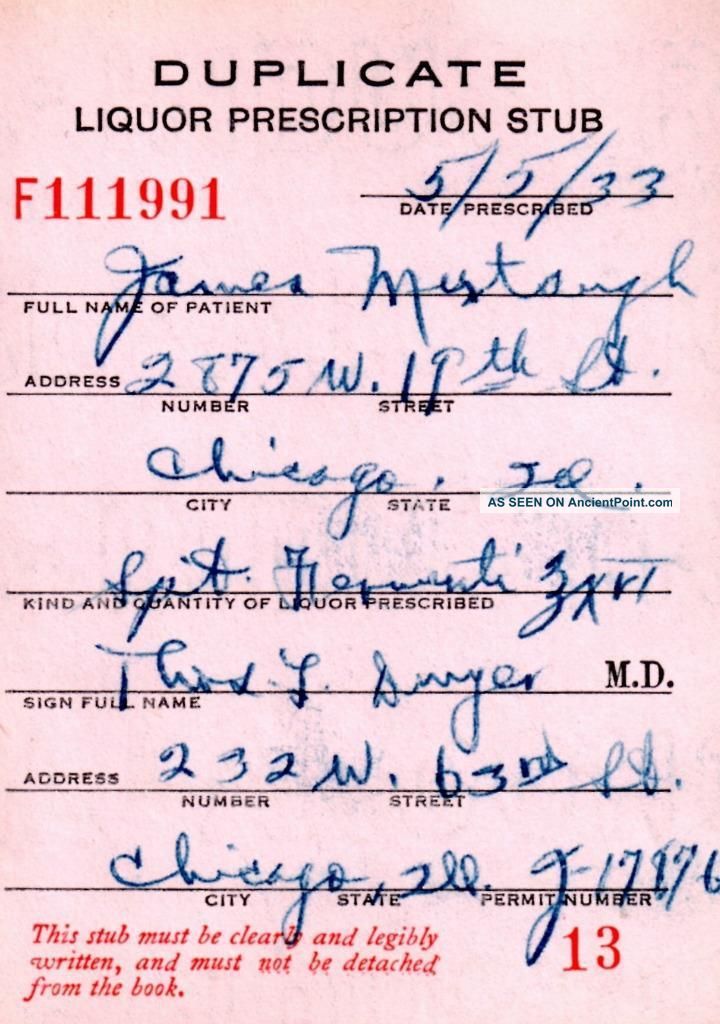 DUPLICATE
LIQUOR PRESCRIPTION STUB
F111991
5/5/33
DATE PRESCRIBED
James
FULL NAME OF PATIENT
ADDRESS 2875 W. 19th St.
NUMBER STREET
Chicago, Ill.
CITY STATE
AS SEEN ON AncientPoint.com
Spit. Fermenti ℥XVI
KIND AND QUANTITY OF LIQUOR PRESCRIBED
Thos L. Dwyer M.D.
SIGN FULL NAME
ADDRESS 232 W. 63rd St.
NUMBER STREET
Chicago, Ill.
CITY STATE PERMIT NUMBER
This stub must be clearly and legibly
written, and must not be detached
from the book.
13